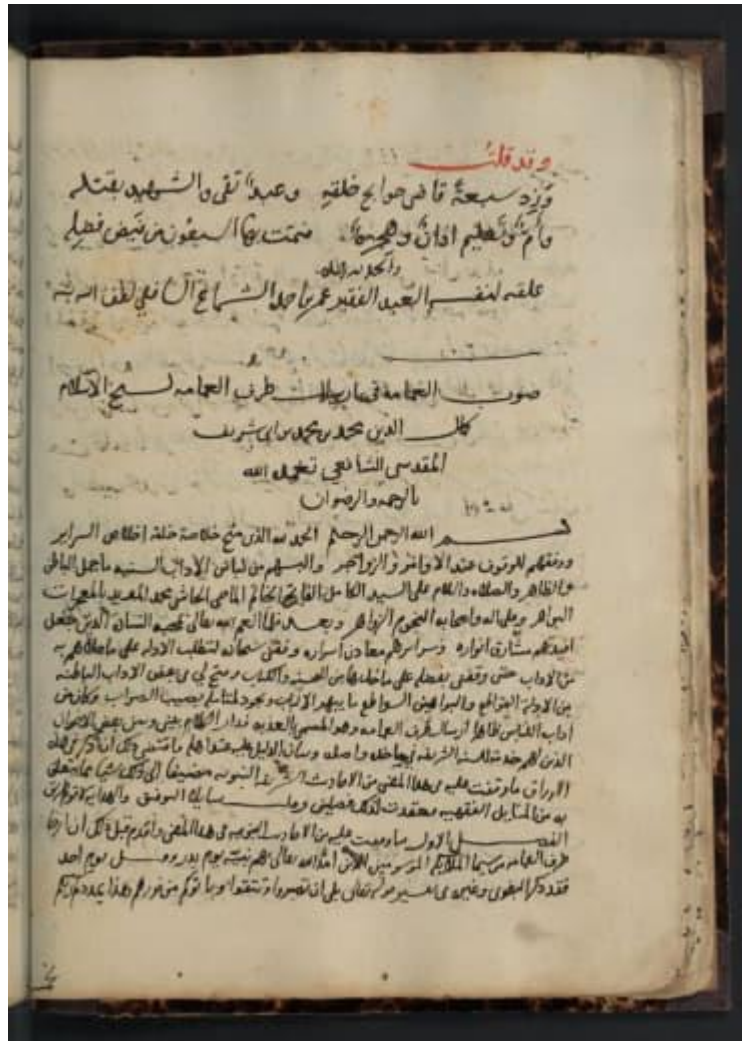 وقد قلت
وزد سبعة قاضي حوايج خلقه وعبدا تقى والشهيد بقتله
وأم وتعليم اذان وهجرة فتمت بها السبعون من فيض فضله
والحمد لله
علقه لنفسه العبد الفقير عمر بن احمد الشماع الشافعي لطف الله به
صوب الغمامة في ارسال طرف العمامه لشيخ الاسلام
كمال الدين محمد بن محمد بن ابي شريف
المقدسي الشافعي تغمده الله
بالرحمة والرضوان
بسم الله الرحمن الرحيم الحمد لله الذي منح خلاصة خلقه اخلاص السراير
ووفقهم للوقوف عند الاوامر والزواجر والبسهم من لباس الآداب السنيه ما جمل الباطن
والظاهر والصلاه والسلام على السيد الكامل الفاتح الخاتم الماحي الحاشر محمد المؤيد بالمعجزات
البواهر وعلى اله واصحابه النجوم الزواهر وبعد فلما انعم الله تعالى بمحبة الذين جعل
افيدتهم مشارق انواره وسرايرهم معادن اسراره وفقني سبحانه لتطلب الادله على ما
من الاداب حتى وقفني بفضله على ماخذها من السنه والكتاب وفتح لي في بعض الاداب الباطنه
من الادلة القواطع والبراهين السواطع ما يبهر الالباب
اداب اللباس ظاهرا ارسال طرف العمامه وهو المسمى بالعذبه فدار الكلام بيني وبين بعض الاخوان
الذين لهم خدمة للسنه الشريفه
الاوراق ما وقفت عليه في هذا المعنى من الاحاديث الشريفة النبويه مضيفا الى ذلك
به من المسايل الفقهيه وعقدت لذلك فصلين
الفصل الاول فيما وقفت عليه من الاحاديث النبويه في هذا المعنى واقدم قبل ذلك ان ارخا
طرف العمامه من سيما الملايكة المسومين الذين امد الله تعالى بهم نبيه يوم بدر وقيل يوم احد
فقد ذكر البغوي وغيره في تفسير قوله تعالى بلى ان تصبروا وتتقوا وياتوكم من فورهم هذا يمددكم ربكم